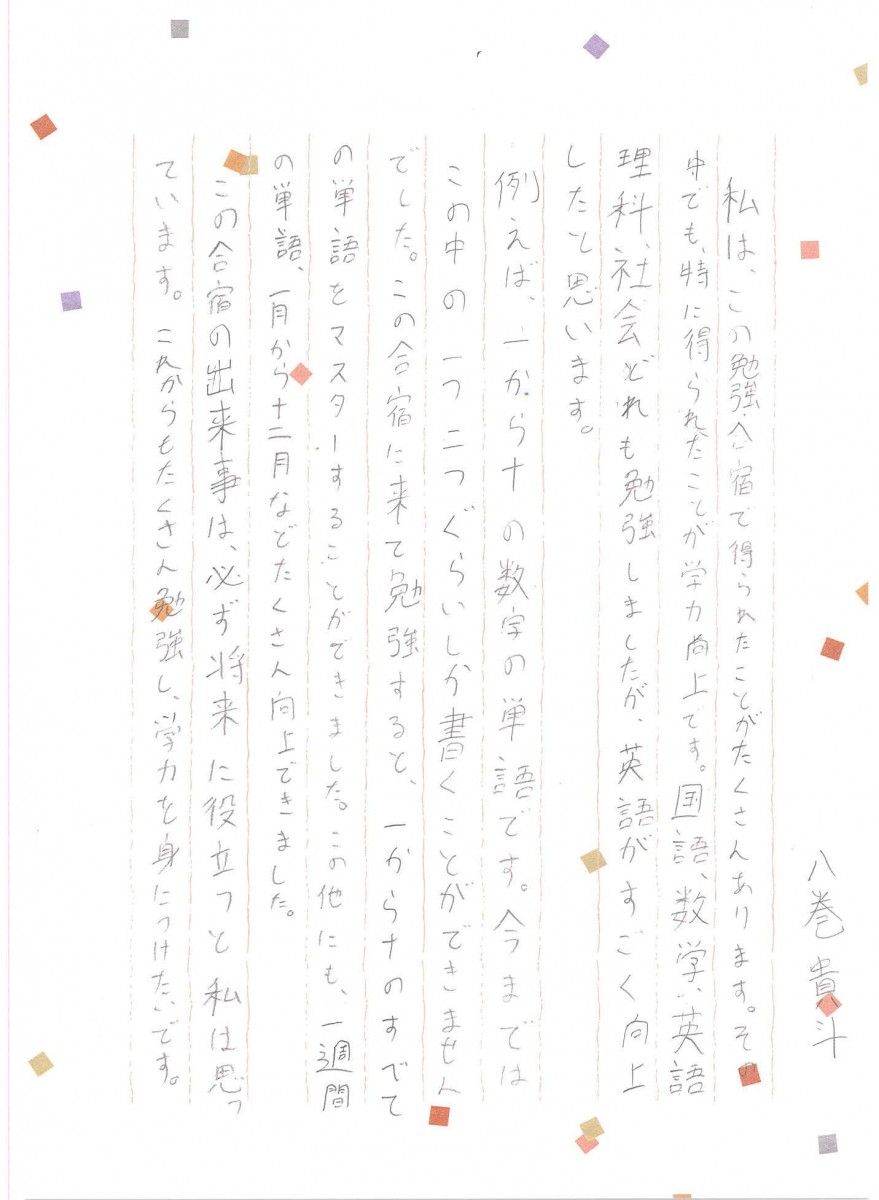 八巻貴斗
私は、この勉強合宿で得られたことがたくさんあります。その
中でも、特に得られたことが学力尚上です。国語、数学、英語
理科、社会どれも勉強しましたが、英語がすごく向上
したと思います。
例えば、一から十の数字の単語です。今までは
この中の一つ二つぐらいしか書くことができません
でした。この合宿に来て勉強すると、一から十のすべて
の単語をマスターすることができました。この他にも、一週間
の単語、一月から十二月などたくさん向上できました。
この合宿の出来事は、必ず将来に役立つと私は思っ
ています。これからもたくさん勉強し、学力を身につけたいです。